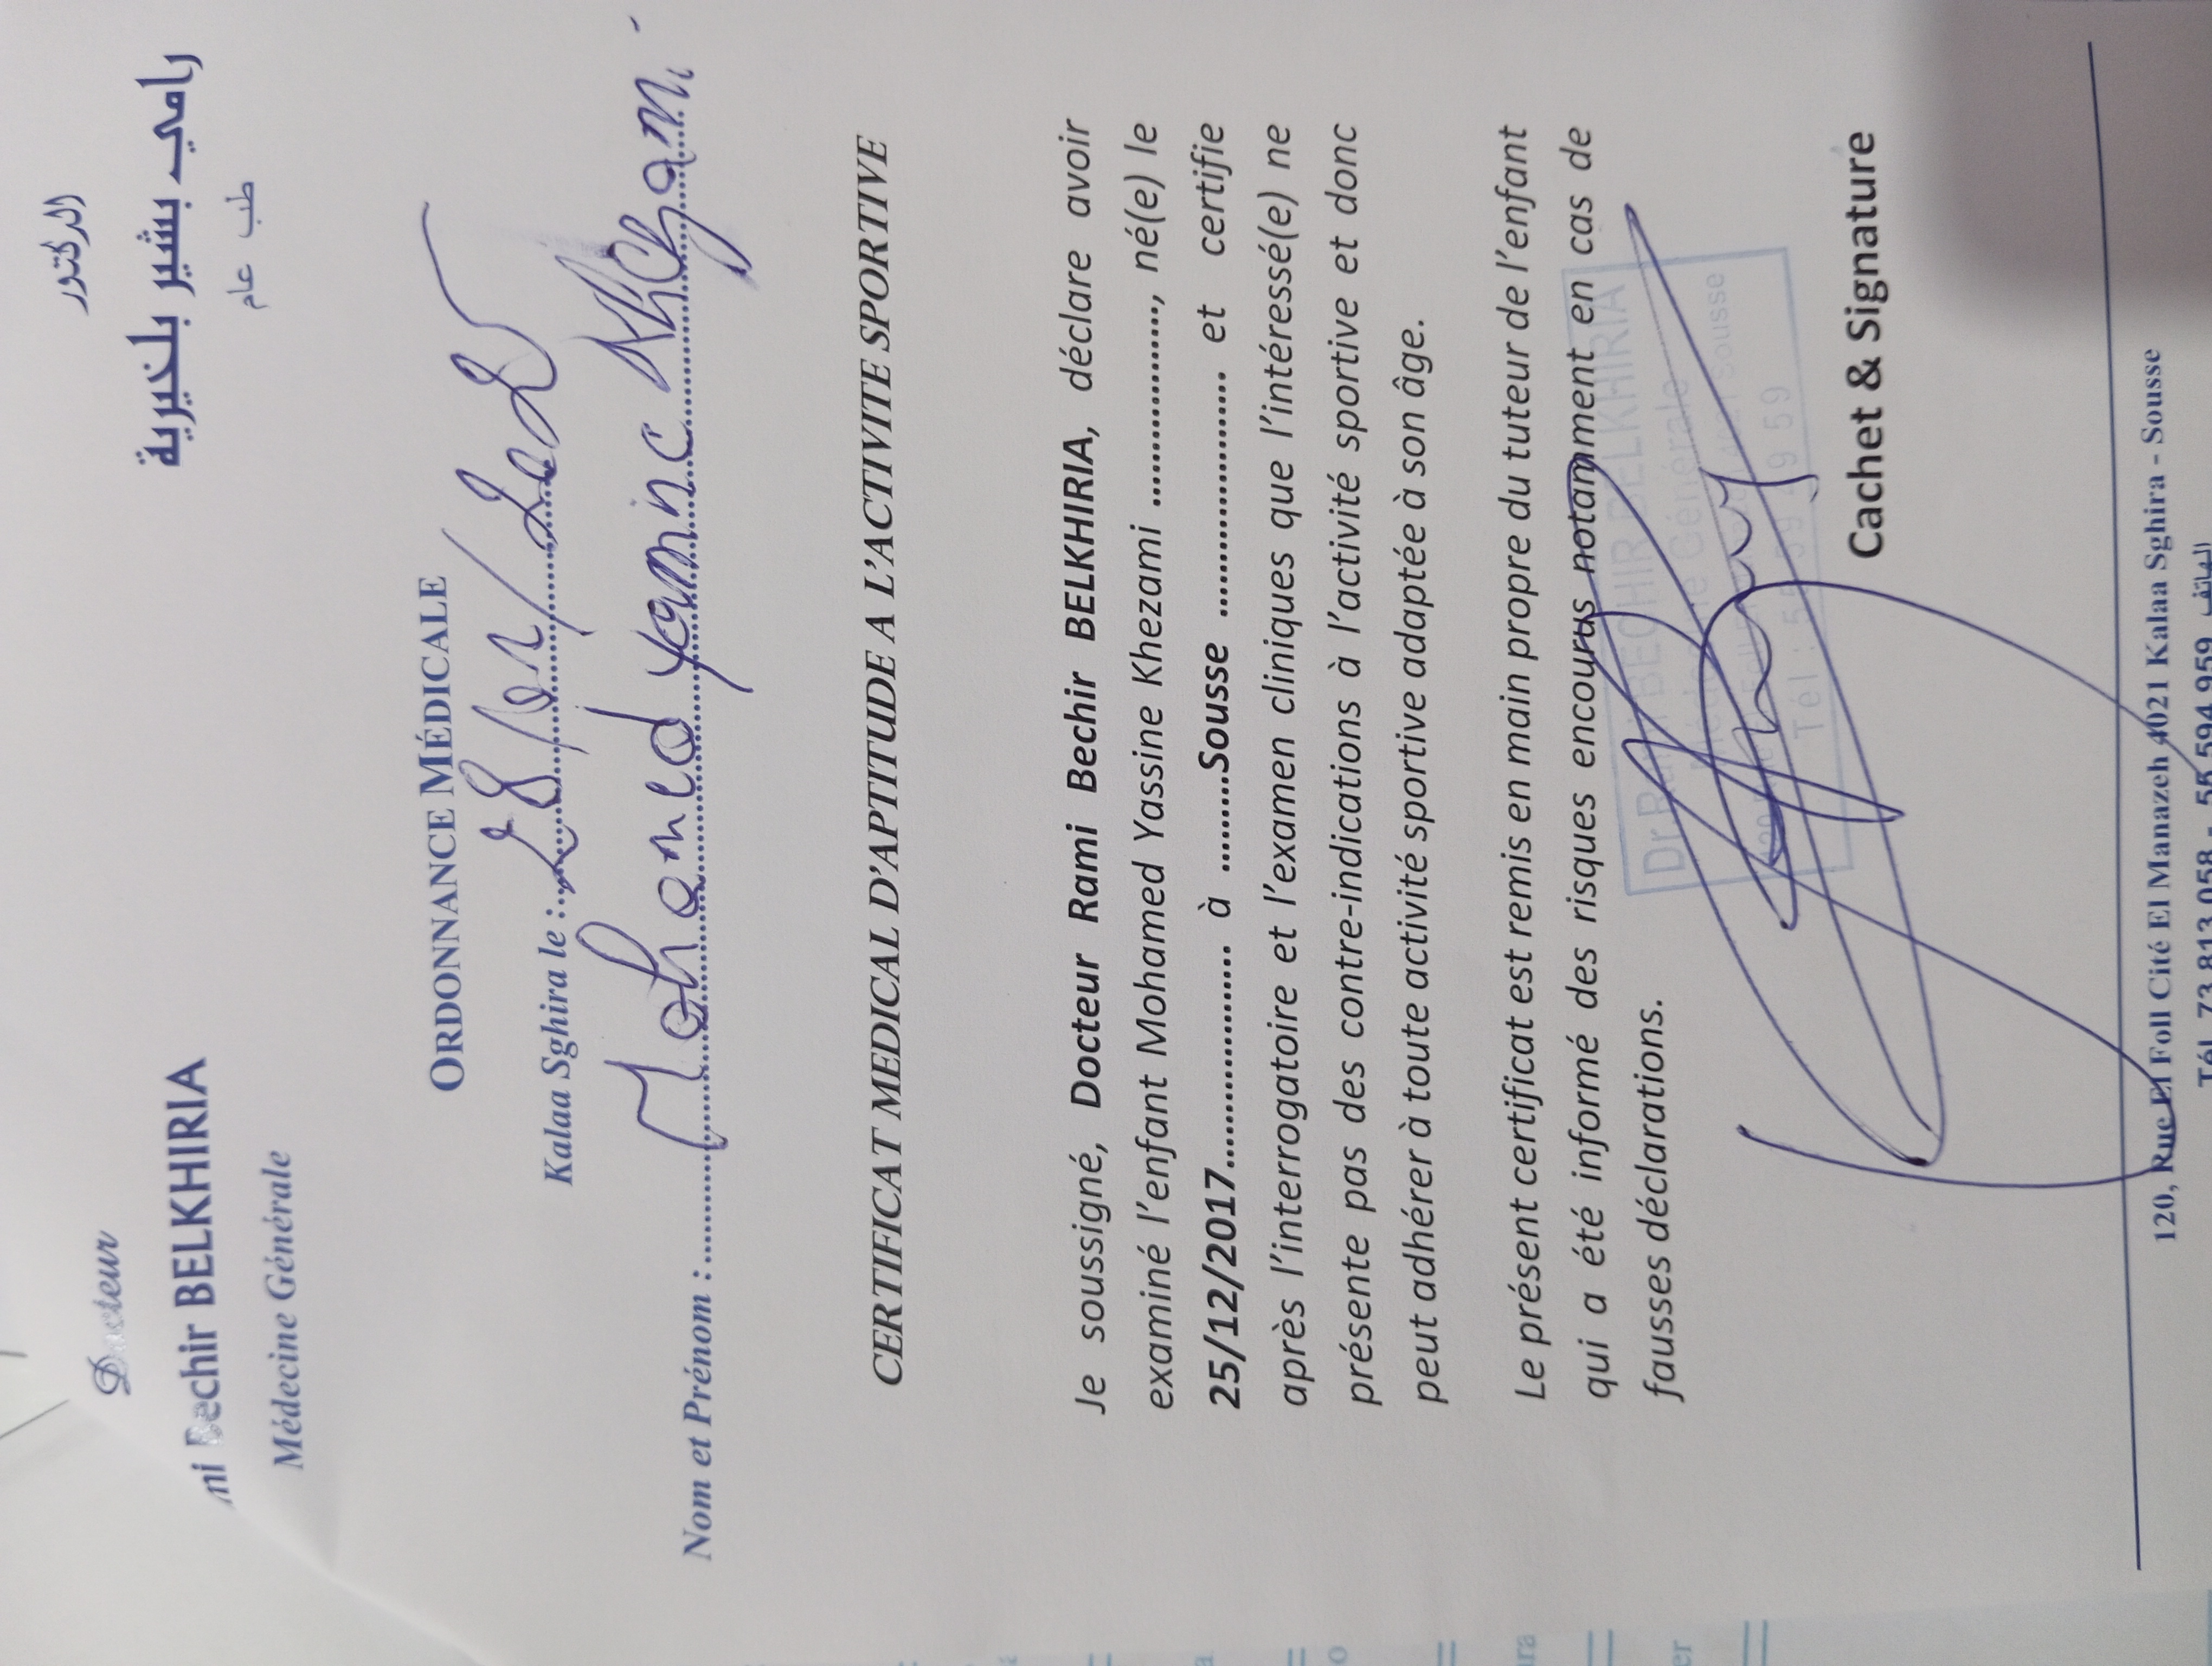 Docteur
الدكتور
Bechir BELKHIRIA
رامي بشير بلخيرية
Médecine Générale
طب عام
ORDONNANCE MÉDICALE
Kalaa Sghira le :
Nom et Prénom : Mohamed Yassine Khezami
CERTIFICAT MEDICAL D'APTITUDE A L'ACTIVITE SPORTIVE
Je soussigné, Docteur Rami Bechir BELKHIRIA, déclare avoir
examiné l'enfant Mohamed Yassine Khezami ..................., né(e) le
25/12/2017...................... à ..........Sousse ........................ et certifie
après l'interrogatoire et l'examen cliniques que l'intéressé(e) ne
présente pas des contre-indications à l'activité sportive et donc
peut adhérer à toute activité sportive adaptée à son âge.
Le présent certificat est remis en main propre du tuteur de l'enfant
qui a été informé des risques encourus notamment en cas de
fausses déclarations.
Dr Rami BECHIR BELKHIRIA
Médecine Générale
Sousse
Cachet & Signature
120, Rue El Foll Cité El Manazeh 4021 Kalaa Sghira - Sousse
Tél. 73 813 058 - 55 594 959 الهاتف